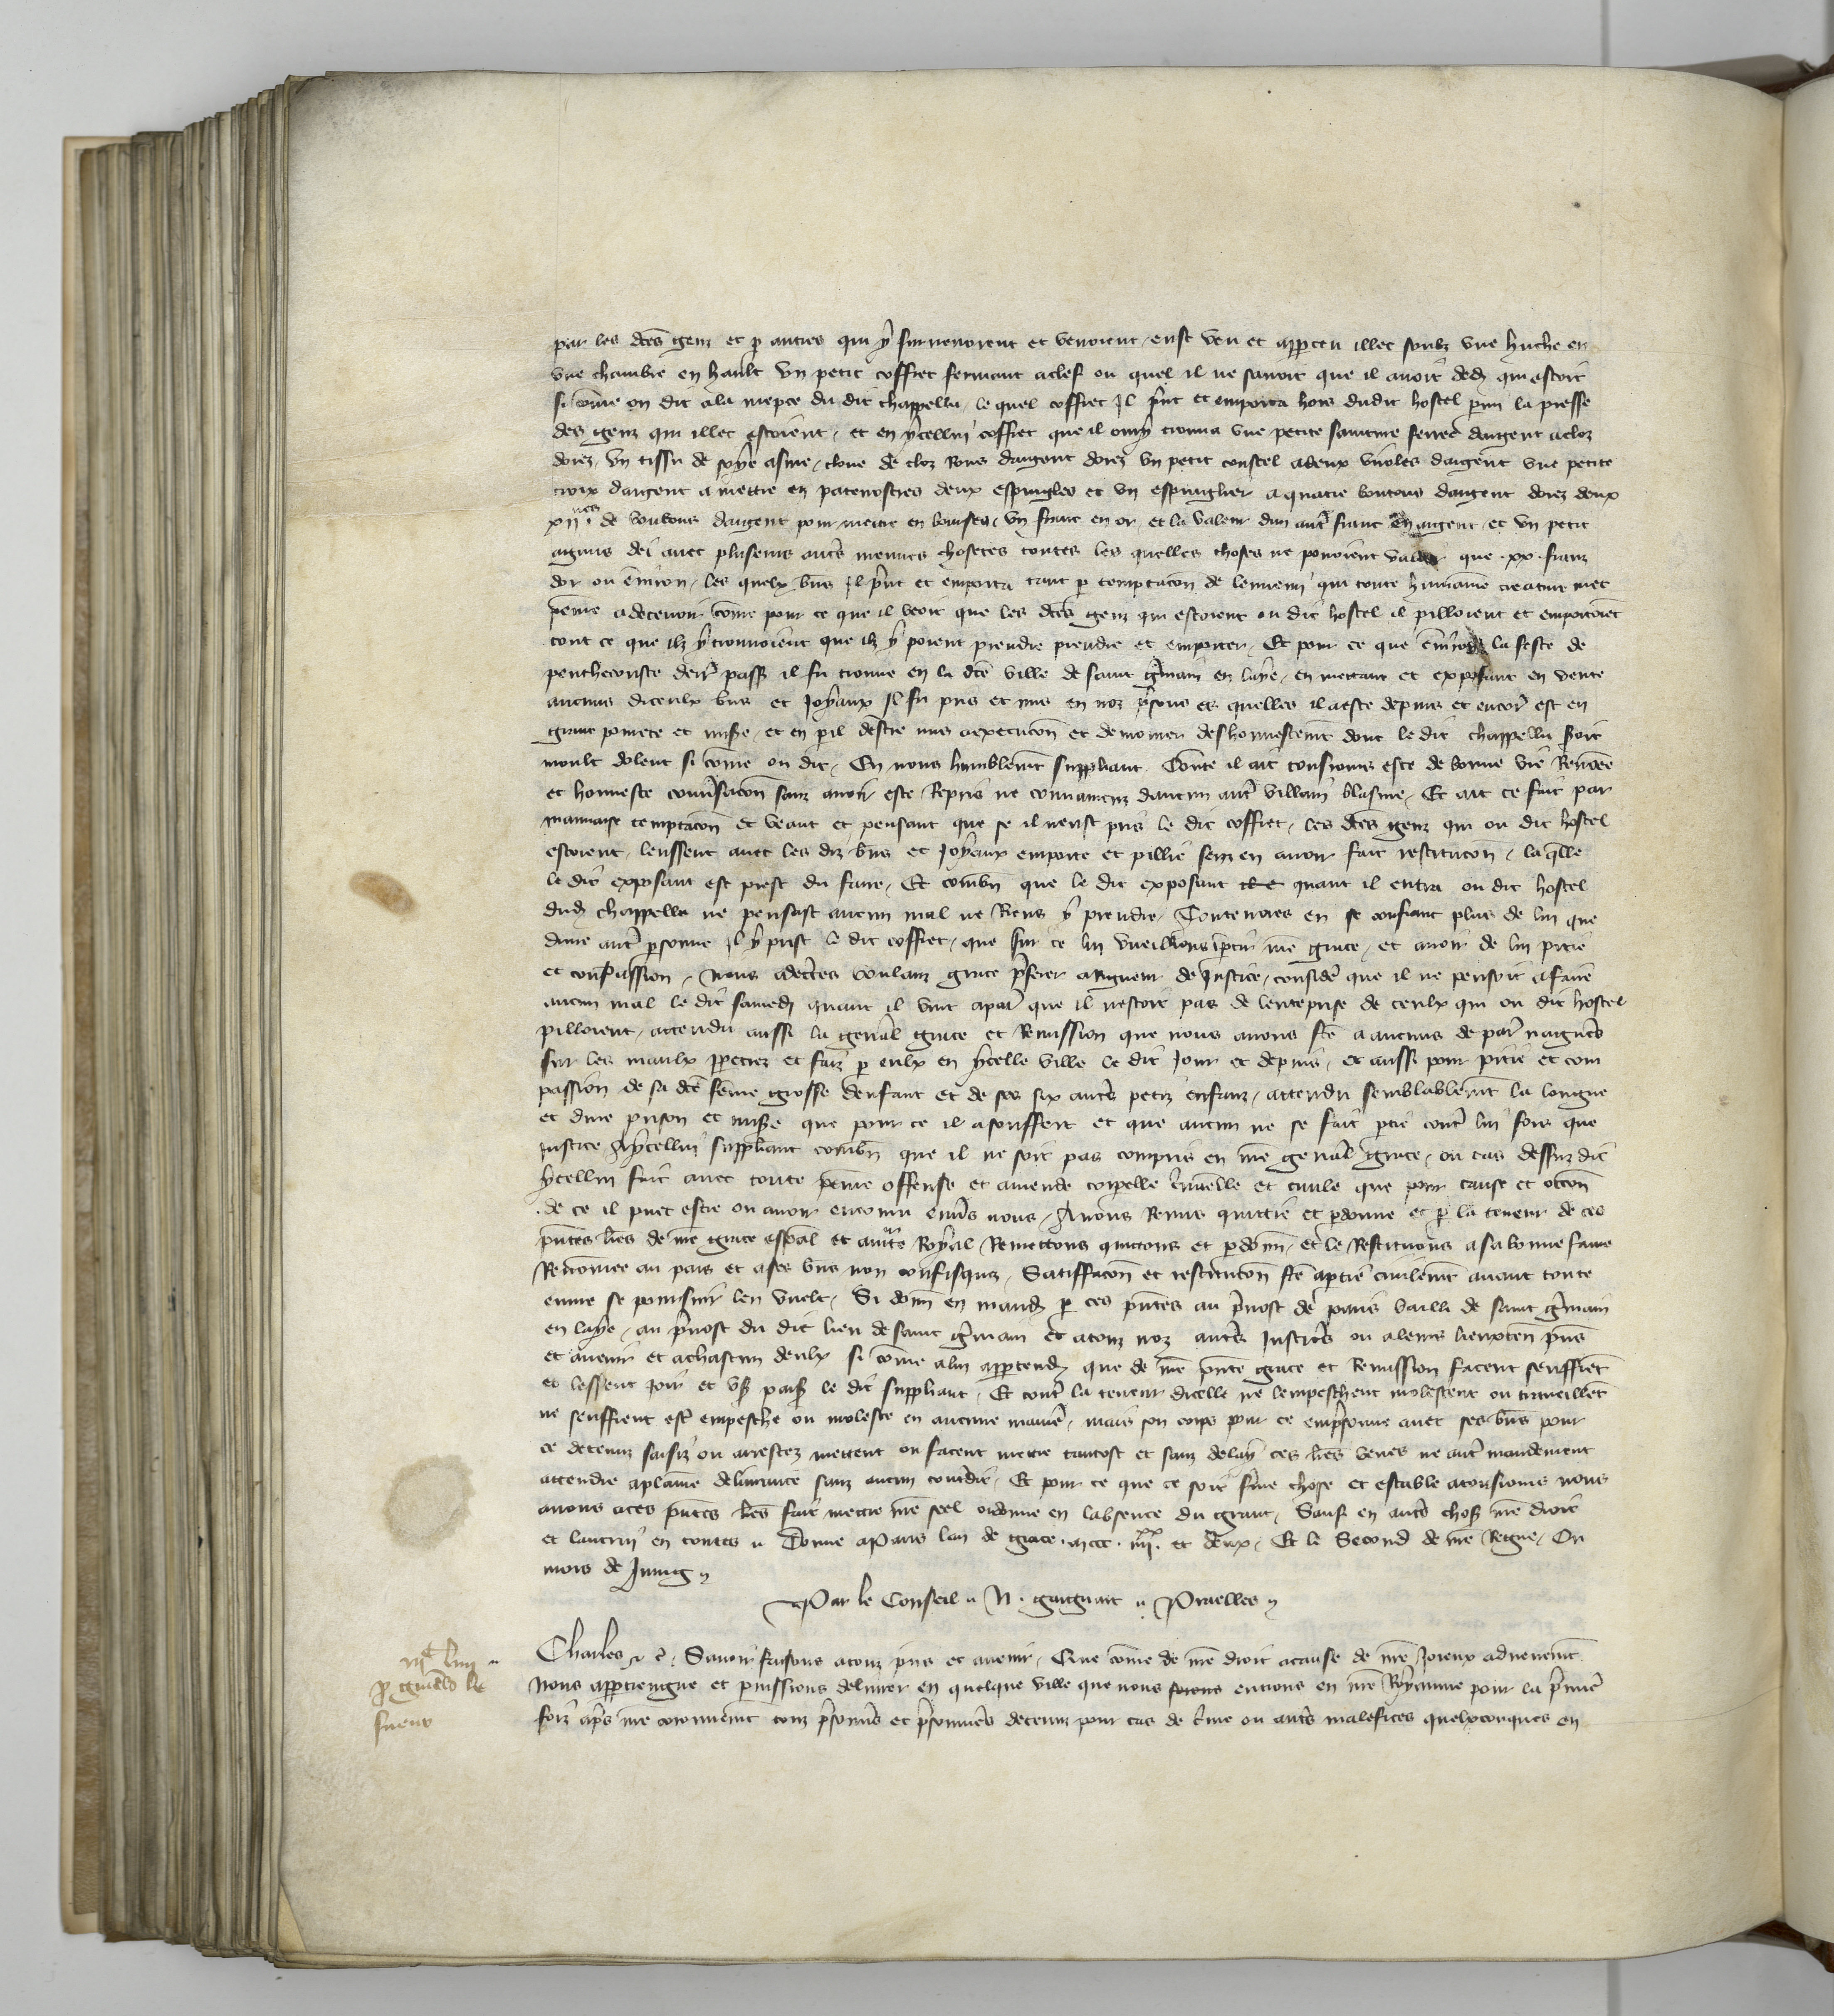 par les dces genz et p autres qui y survenoient et venoient eust veu et apperceu illec soubz une huche en
une chambre en hault un petit coffret fermant a clef ou quel il ne savoit que il avoit dedens qui estoit
si come on dit a la niepce du dit chappellain le quel coffret Il print et emporta hors dudit hostel parmi la presse
des genz qui illec estoient et en ycellui coffret que il ouvry trouva une petite sainture ferree dargent a cloz
dorez un tissu de soye asure cloue de cloz Rons dargent dorez un petit coustel a deux viroles dargent une petite
croix dargent a mettre en patenostres deux espingles et un espinglier a quatre boutons dargent dorez deux
xii nes de boutons dargent pour mettre en bourses un franc en or et la valeur dun autre franc en argent et un petit
agnus dei avec pluseurs autres menues chosetes toutes les quelles choses ne povoient valoir que xx frans
dor ou environ les quelx biens Il print et emporta tant p temptacon de lennemi qui toute humaine creature met
peine a decevoir come pour ce que il veoit que les dces genz qui estoient ou dit hostel il pilloient et emportoient
tout ce que ilz y trouvoient que ilz y poient prendre prendre et emporter Et pour ce que environ la feste de
penthecouste derr passe il fu trouve en la dce ville de saint Gmain en laye en mettant et exposant en vente
aucuns diceulx biens et Joyaux Il fu pris et mis en noz prisons es quelles il a este depuis et encores est en
grant povrete et misere et en peril destre mis a execucon et de mourir deshonnestement dont le dit chappellain seroit
moult dolent si come on dit En nous humblement suppliant Come il ait tousjours este de bonne vie Renomee
et honneste conversacon sanz avoir este Repris ne convaincuz daucun autre villain blasme Et ait ce fait par
mauvaise temptacon et veant et pensant que se il neust pris le dit coffret les dces genz qui ou dit hostel
estoient leussent avec les diz biens et Joyaux emporte et pillie senz en avoir fait restitucon la quelle
le dit exposant est prest du faire Et combn que le dit exposant quant il entra ou dit hostel
dud chappellain ne pensast aucun mal ne Riens y prendre Toutevoies en se confiant plus de lui que
dune autre personne Il y prist le dit coffret que sur ce lui vueillions impartir nre grace et avoir de lui pitie
et compassion Nous adecertes voulans grace preferer a Rigueur de Justice considere que il ne pensoit a faire
aucun mal le dit samedi quant il vint a paris que il nestoit pas de lentreprise de ceulx qui ou dit hostel
pilloient attendu aussi la general grace et Remission que nous avons fce a aucuns de paris nagueres
sur les maulx perpetrez et faiz p eulx en ycelle ville le dit Jour et depuis et aussi pour pitie et com
passion de sa dce feme grosse denfant et de ses six autres petiz enfans attendu semblablement la longue
et dure prison et misere que pour ce il a souffert et que aucun ne se fait ptie contre lui fors que
justice A ycellui suppliant combn que il ne soit pas compris en nre general grace ou cas dessusdit
ycellui fait avec toute peine offense et amende corporelle criminelle et civile que pour cause et occon
de ce il puet estre ou avoir encouru envers nous Avons Remis quittie et pdonne et p la teneur de ces
pntes lres de nre grace especal et aucte Royal Remettons quittons et pdonn et le Restituons a sa bonne fame
Renomee au pais et a ses biens non confisquez Satiffacon et restitucon fce a ptie civilement avant toute
euvre se poursuir len vuelt Si donn en mand p ces pntes au prevost de paris bailli de saint Gmain
en laye au prevost du dit lieu de saint Gmain et a touz noz autres Justiciers ou a leurs lieuxten pns
et avenir et a chascun deulx si come a lui appartendra que de nre pnte grace et Remission facent seuffrent
et lessent joir et user paisiblement le dit suppliant Et contre la teneur dicelle ne lempeschent molestent ou travaillent
ne seuffrent estre empesche ou moleste en aucune maniere mais son corps pour ce emprisonne avec ses biens pour
ce detenuz saisiz ou arrestez mettent ou facent mettre tantost et sanz delay ces lres veues ne autre mandement
attendre a plaine delivrance sanz aucun contredit Et pour ce que ce soit ferme chose et estable a tousjours nous
avons a ces pntes lres fait mettre nre seel ordonne en labsence du grant Sauf en autres choses nre droit
et lautrui en toutes Donne a Paris lan de grace mccc iiii xx et deux Et le Second de nre Regne Ou
mois de Juing
Par le Conseil N. gaignart Pruelles
iiic liiii
p
Charles &c. Savoir faisons a touz pns et avenir Que come de nre droit a cause de nre Joieux advenement
Nous appartiengne et puissions delivrer en quelque ville que nous entrions en nre Royaume pour la pmiere
foiz apres nre couronnement touz prisonniers et prisonnieres detenuz pour cas de crime ou autres malefices quelxconques en